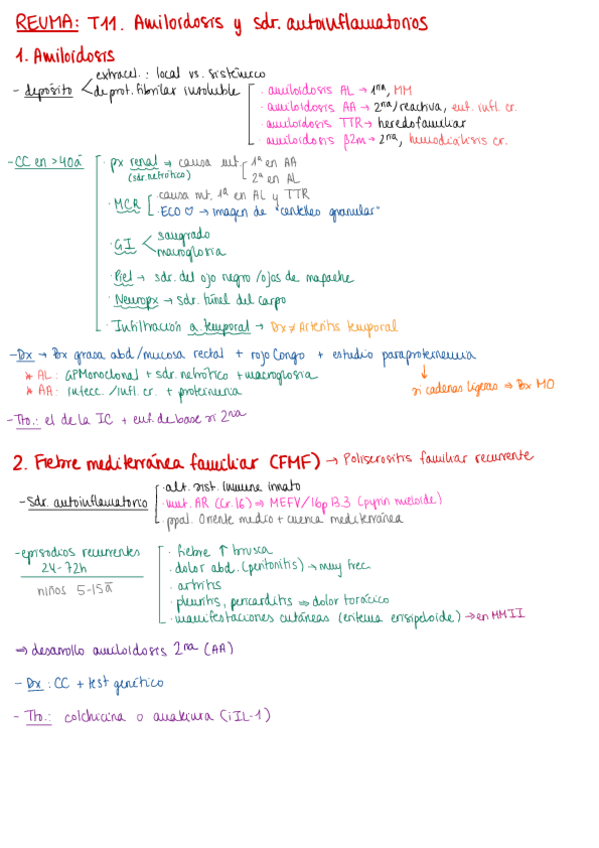 REUMA: T11. Amiloidosis y sdr. autoinflamatorios
1. Amiloidosis
- depósito
extracel.: local vs. sistémico
de prot. fibrilar insoluble
· amiloidosis AL → 1ria, MM
· amiloidosis AA → 2ria/reactiva, enf. infl. cr.
· amiloidosis TTR → heredofamiliar
· amiloidosis β2m → 2ria, hemodiálisis cr.
- CC en >40a
· px renal → causa mt.
(sdr. nefrótico)
1ª en AA
2ª en AL
· MCR
· causa mt. 1ª en AL y TTR
· ECO ♡ → imagen de "centelleo granular"
· GI
sangrado
macroglosia
· Piel → sdr. del ojo negro / ojos de mapache
· Neuropx → sdr. túnel del carpo
· Infiltración a. temporal → Dx ≠ Arteritis temporal
- Dx → Bx grasa abd/mucosa rectal + rojo Congo + estudio paraproteinemia
* AL: GPMonoclonal + sdr. nefrótico + macroglosia
* AA: infecc. / infl. cr. + proteinuria
si cadenas ligeras ⇒ Bx MO
- Tto.: el de la IC + enf. de base si 2ria
2. Fiebre mediterránea familiar (FMF) → Poliserositis familiar recurrente
- sdr. autoinflamatorio
· alt. sist. inmune innato
· mut. AR (Cr. 16) ⇒ MEFV/16p 13.3 (pyrin mieloide)
· ppal. Oriente medio + cuenca mediterránea
- episodios recurrentes
24-72h
niños 5-15a
· fiebre ↑ brusca
· dolor abd. (peritonitis) → muy frec
· artritis
· pleuritis, pericarditis ⇒ dolor torácico
· manifestaciones cutáneas (eritema erisipeloide) → en MMII
⇒ desarrollo amiloidosis 2ria (AA)
- Dx: CC + test genético
- Tto.: colchicina o anakinra (iIL-1)